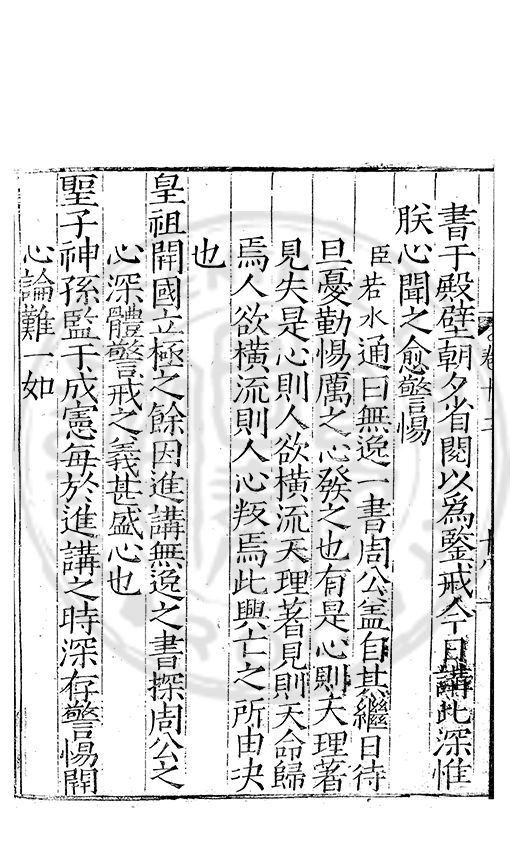 書于殿壁朝夕省閱以為鑒戒今日講此深惟
朕心聞之愈警惕
臣若水通曰無逸一書周公蓋自其繼日待
旦憂勤惕厲之心發之也有是心則天理著
見失是心則人欲橫流天理著見則天命歸
焉人欲橫流則人心叛焉此興亡之所由決
也
皇祖開國立極之餘因進講無逸之書探周公之
心深體警戒之義甚盛心也
聖子神孫監于成憲每於進講之時深存警惕開
心論難一如